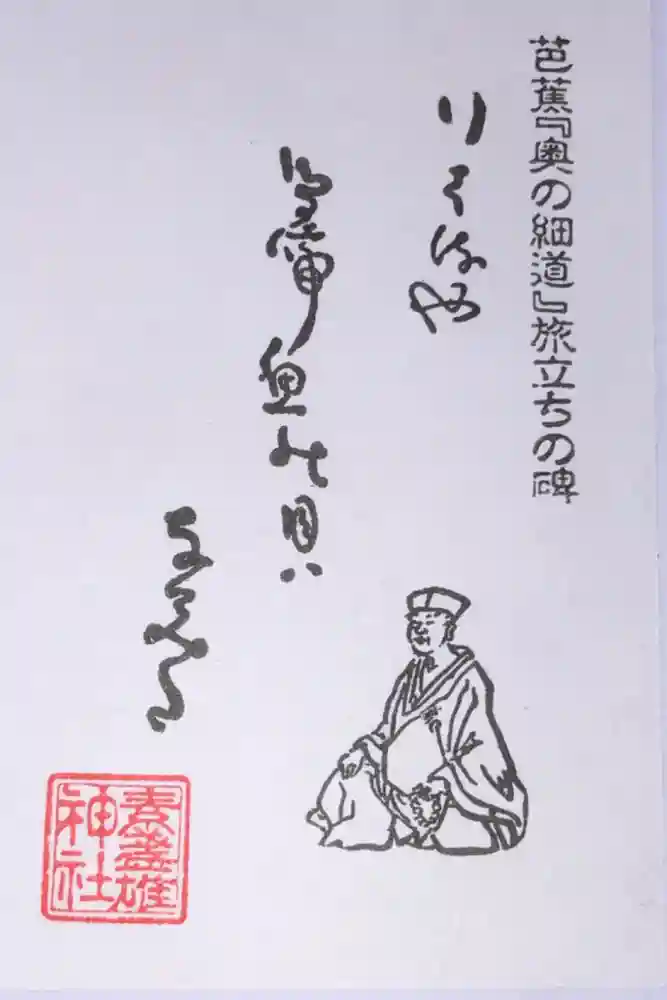 芭蕉『奥の細道』旅立ちの碑
行くはるや
鳥啼魚の目ハ
なみた
素盞雄
神社